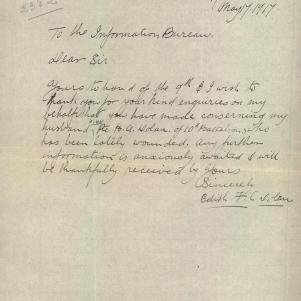 May 17, 1917
To the Information Bureau.
Dear Sir
Yours to hand of the 9th & I wish to
thank you for your kind enquiries on my
behalf that you have made concerning my
husband, Pte H. A. of 10th Battalion, who
has been lately wounded, any further
information is anxiously awaited & will
be thankfully received by Yours
Sincerely
Edith F. C.